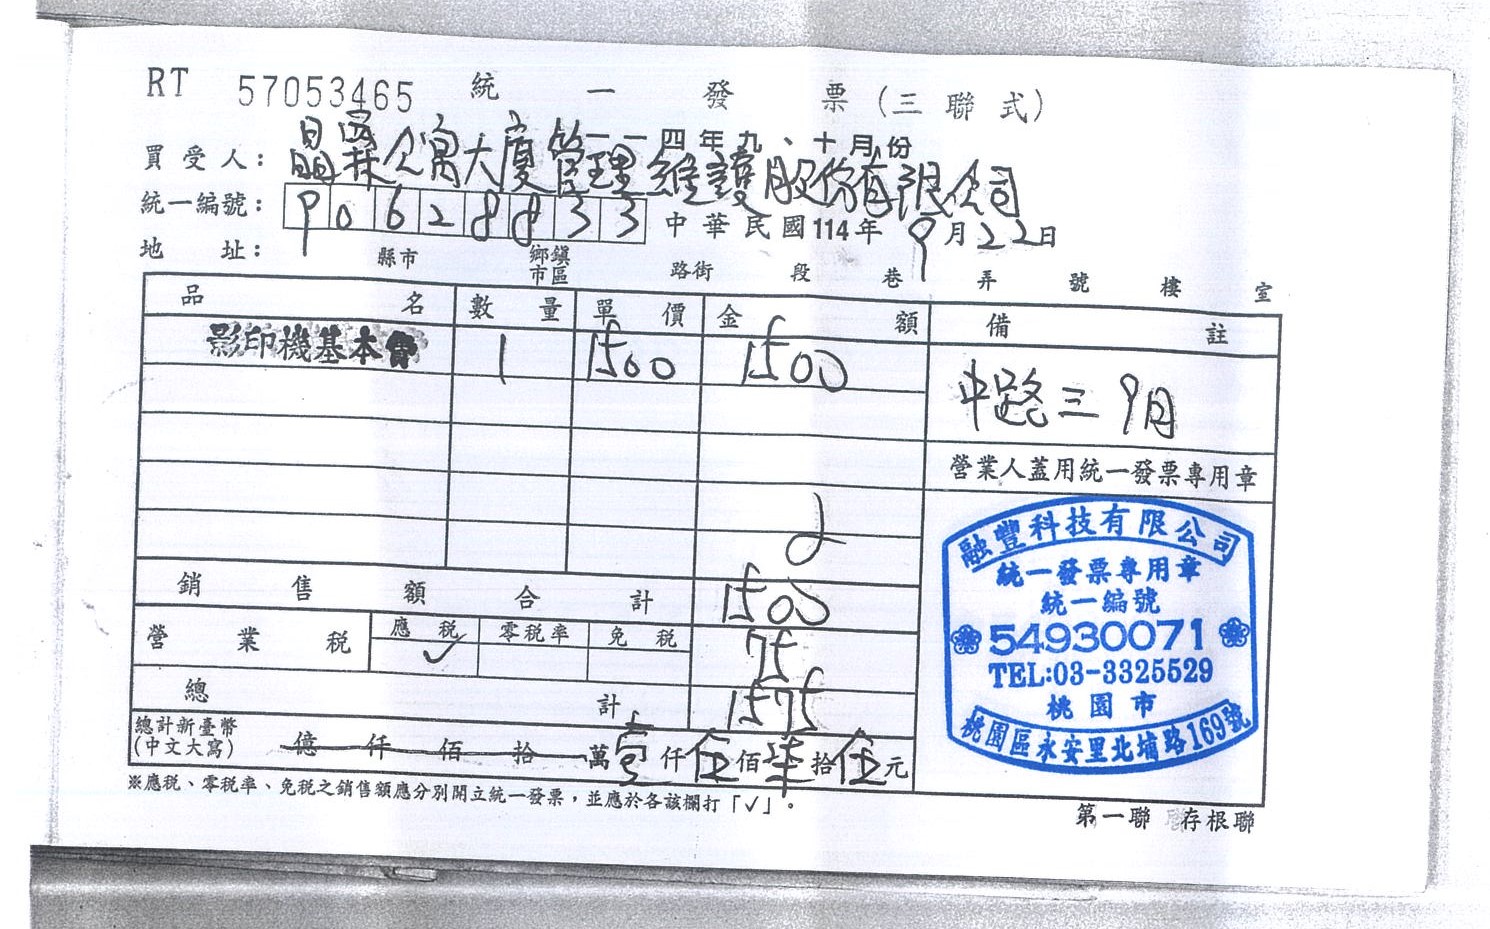 RT 57053465 統一發票(三聯式)
一一四年九、十月份
買受人: 晶霖公寓大廈管理維護股份有限公司
統一編號: 90628833 中華民國114年9月22日
地址: 縣市 鄉鎮市區 路街 段 巷 弄 號 樓 室
品名 數量 單價 金額 備註
影印機基本費 1 1500 1500
中路三 9月
營業人蓋用統一發票專用章
銷售額合計 1500
營業稅 應稅 ✓ 零稅率 免稅 75
總計 1575
總計新臺幣
(中文大寫) 億仟佰拾萬壹仟伍佰柒拾伍元
※應稅、零稅率、免稅之銷售額應分別開立統一發票,並應於各該欄打「✓」。
融豐科技有限公司
統一發票專用章
統一編號
54930071
TEL:03-3325529
桃園市
桃園區永安里北埔路169號
第一聯 存根聯